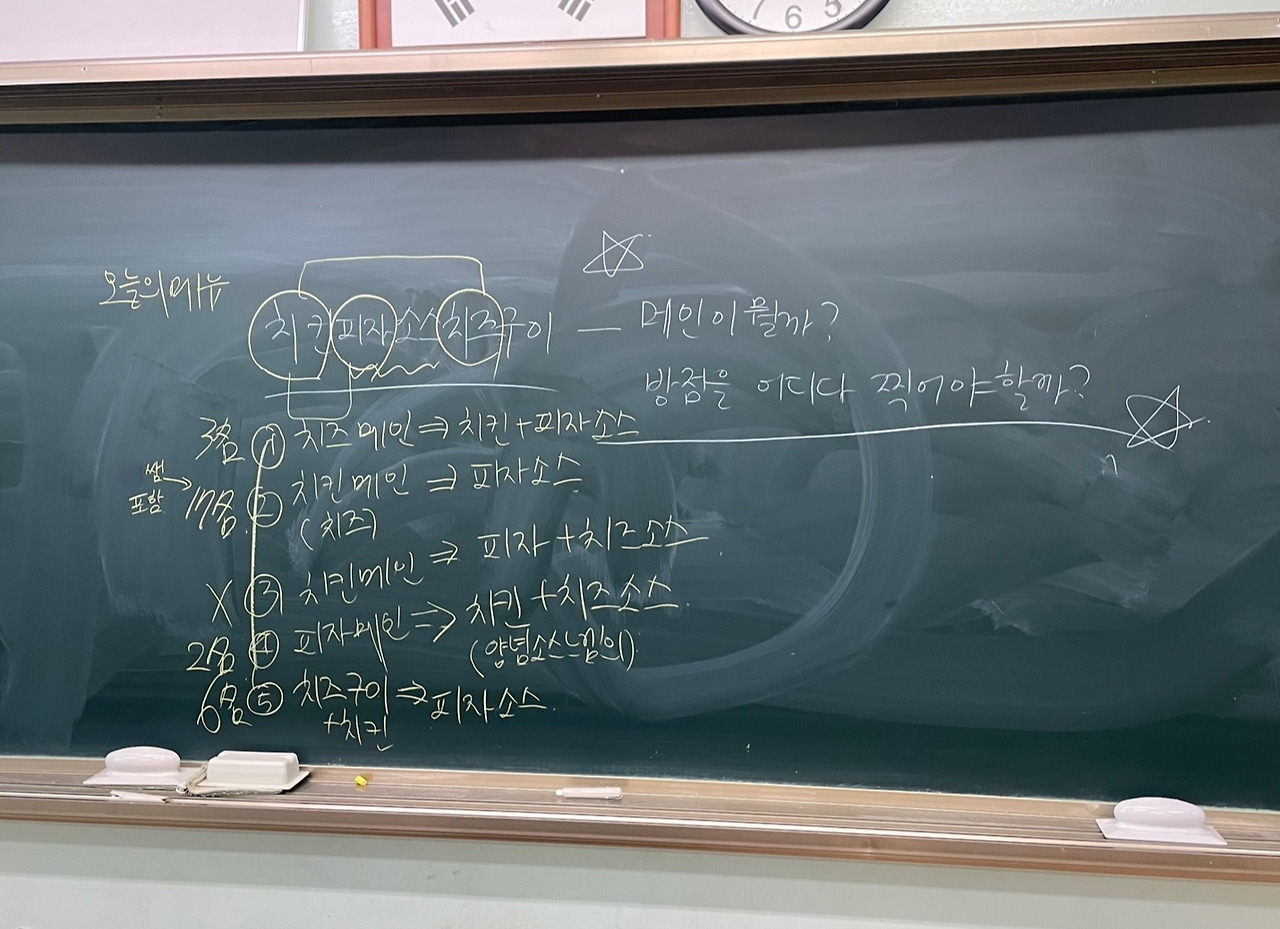 6 5
오늘의메뉴
치킨피자소스치즈구이 — 메인이 뭘까?
방점을 어디다 찍어야할까?
3명 ① 치즈메인 ⇒ 치킨+피자소스
쌤포함 → 17명 ② 치킨메인 ⇒ 피자소스
(치즈)
X ③ 치킨메인 ⇒ 피자+치즈소스
2명 ④ 피자메인 ⇒ 치킨+치즈소스
(양념소스느낌의)
6명 ⑤ 치즈구이 ⇒ 피자소스
+치킨